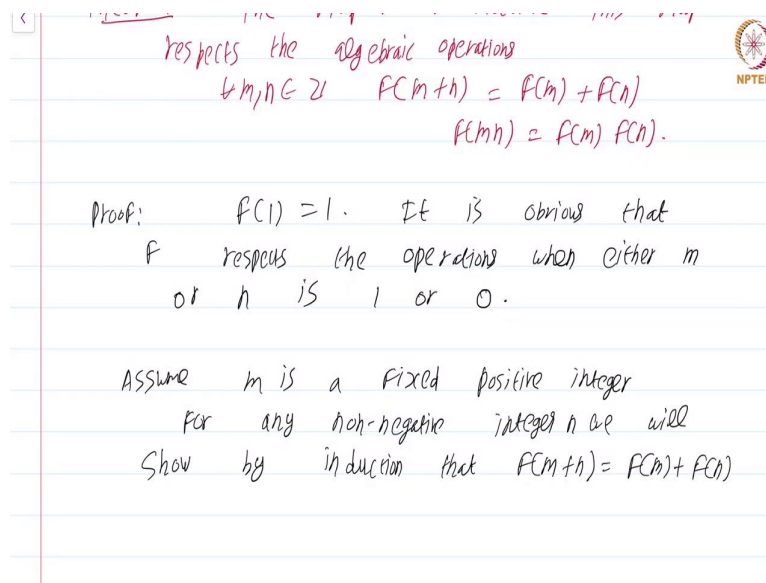 respects the algebraic operations
∀ m,n ∈ ℤ f(m+n) = f(m) + f(n)
f(mn) = f(m) f(n).
NPTE
Proof: f(1) = 1. It is obvious that
f respects the operations when either m
or n is 1 or 0.
Assume m is a fixed positive integer
For any non-negative integer n we will
show by induction that f(m+n) = f(m) + f(n)